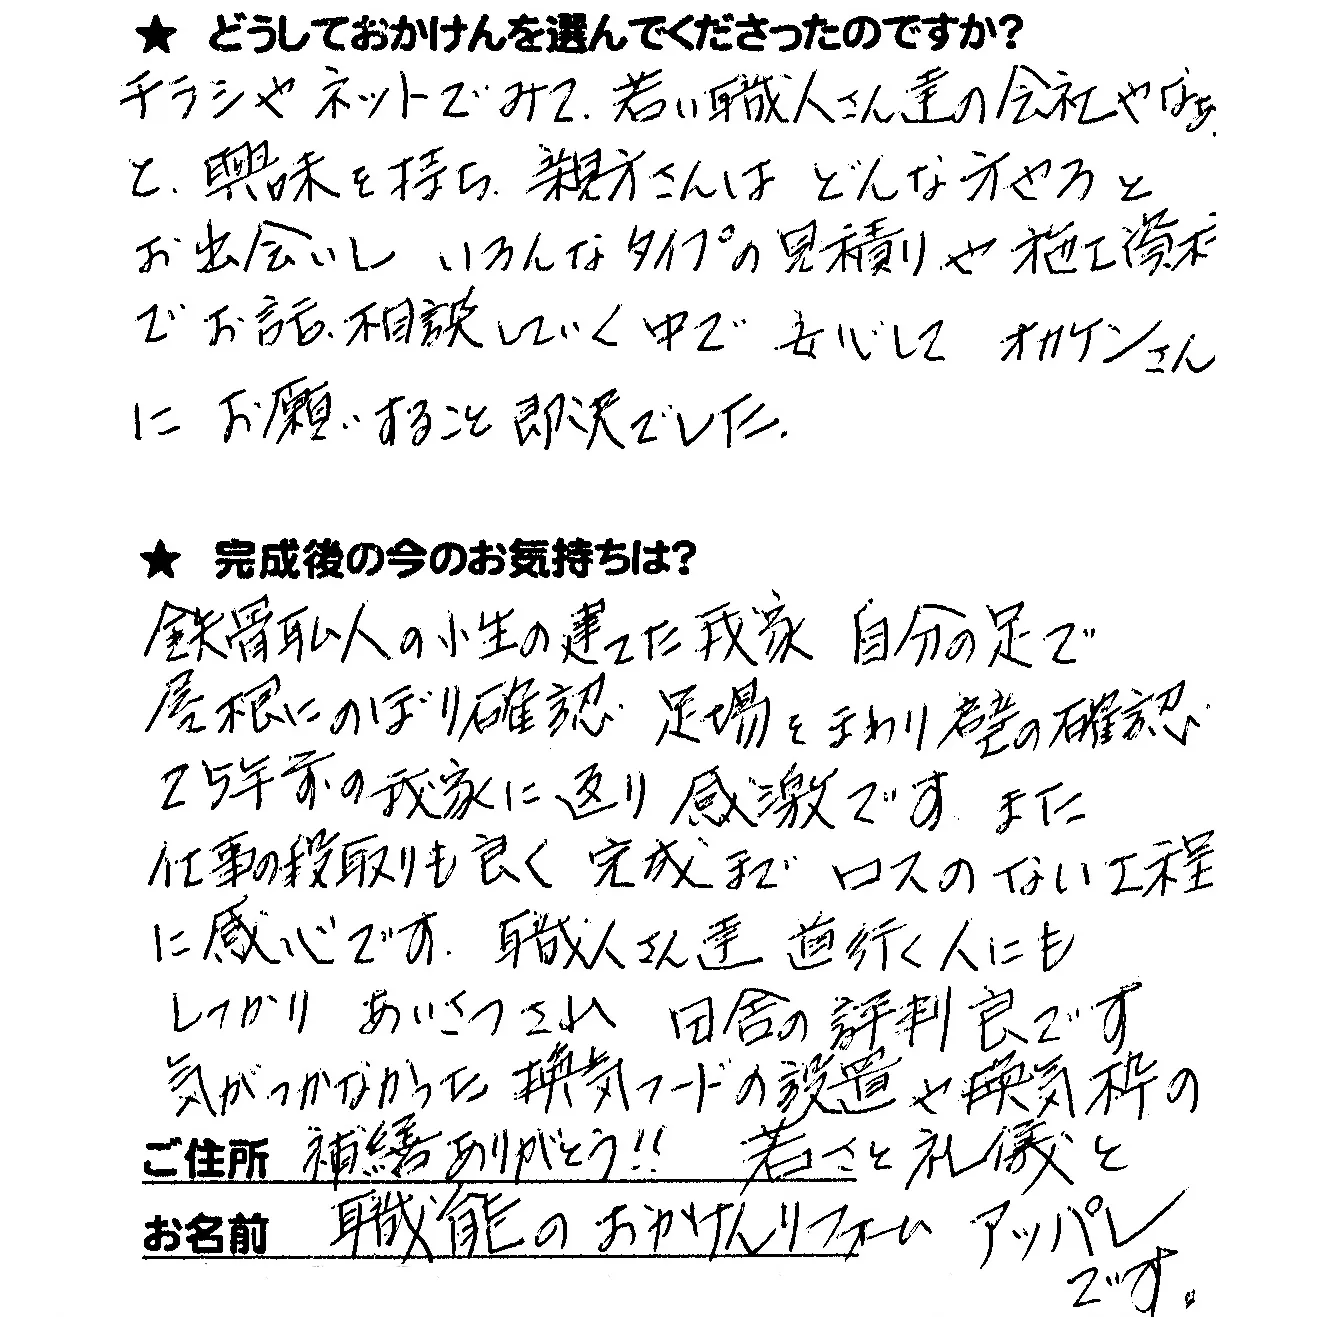 ★ どうしておかけんを選んでくださったのですか?
チラシやネットでみて、若い職人さん達の会社やなぁ
と、興味を持ち、親方さんは どんな方やろと
お出会いし いろんなタイプの見積りや 施工資材
でお話、相談していく中で 安心して オカケンさん
に お願いすること即決でした。
★ 完成後の今のお気持ちは?
鉄骨職人の小生の建てた我家 自分の足で
屋根にのぼり確認 足場をまわり壁の確認
25年前の我家に返り 感激です また
仕事の段取りも良く 完成まで ロスのない工程
に感心です。職人さん達 道行く人にも
しっかり あいさつされ 田舎の評判良です
気がつかなかった 換気フードの設置や換気枠の
ご住所 補繕ありがとう!! 若さと礼儀と
お名前 職能の おかけんリフォーム アッパレ
です。